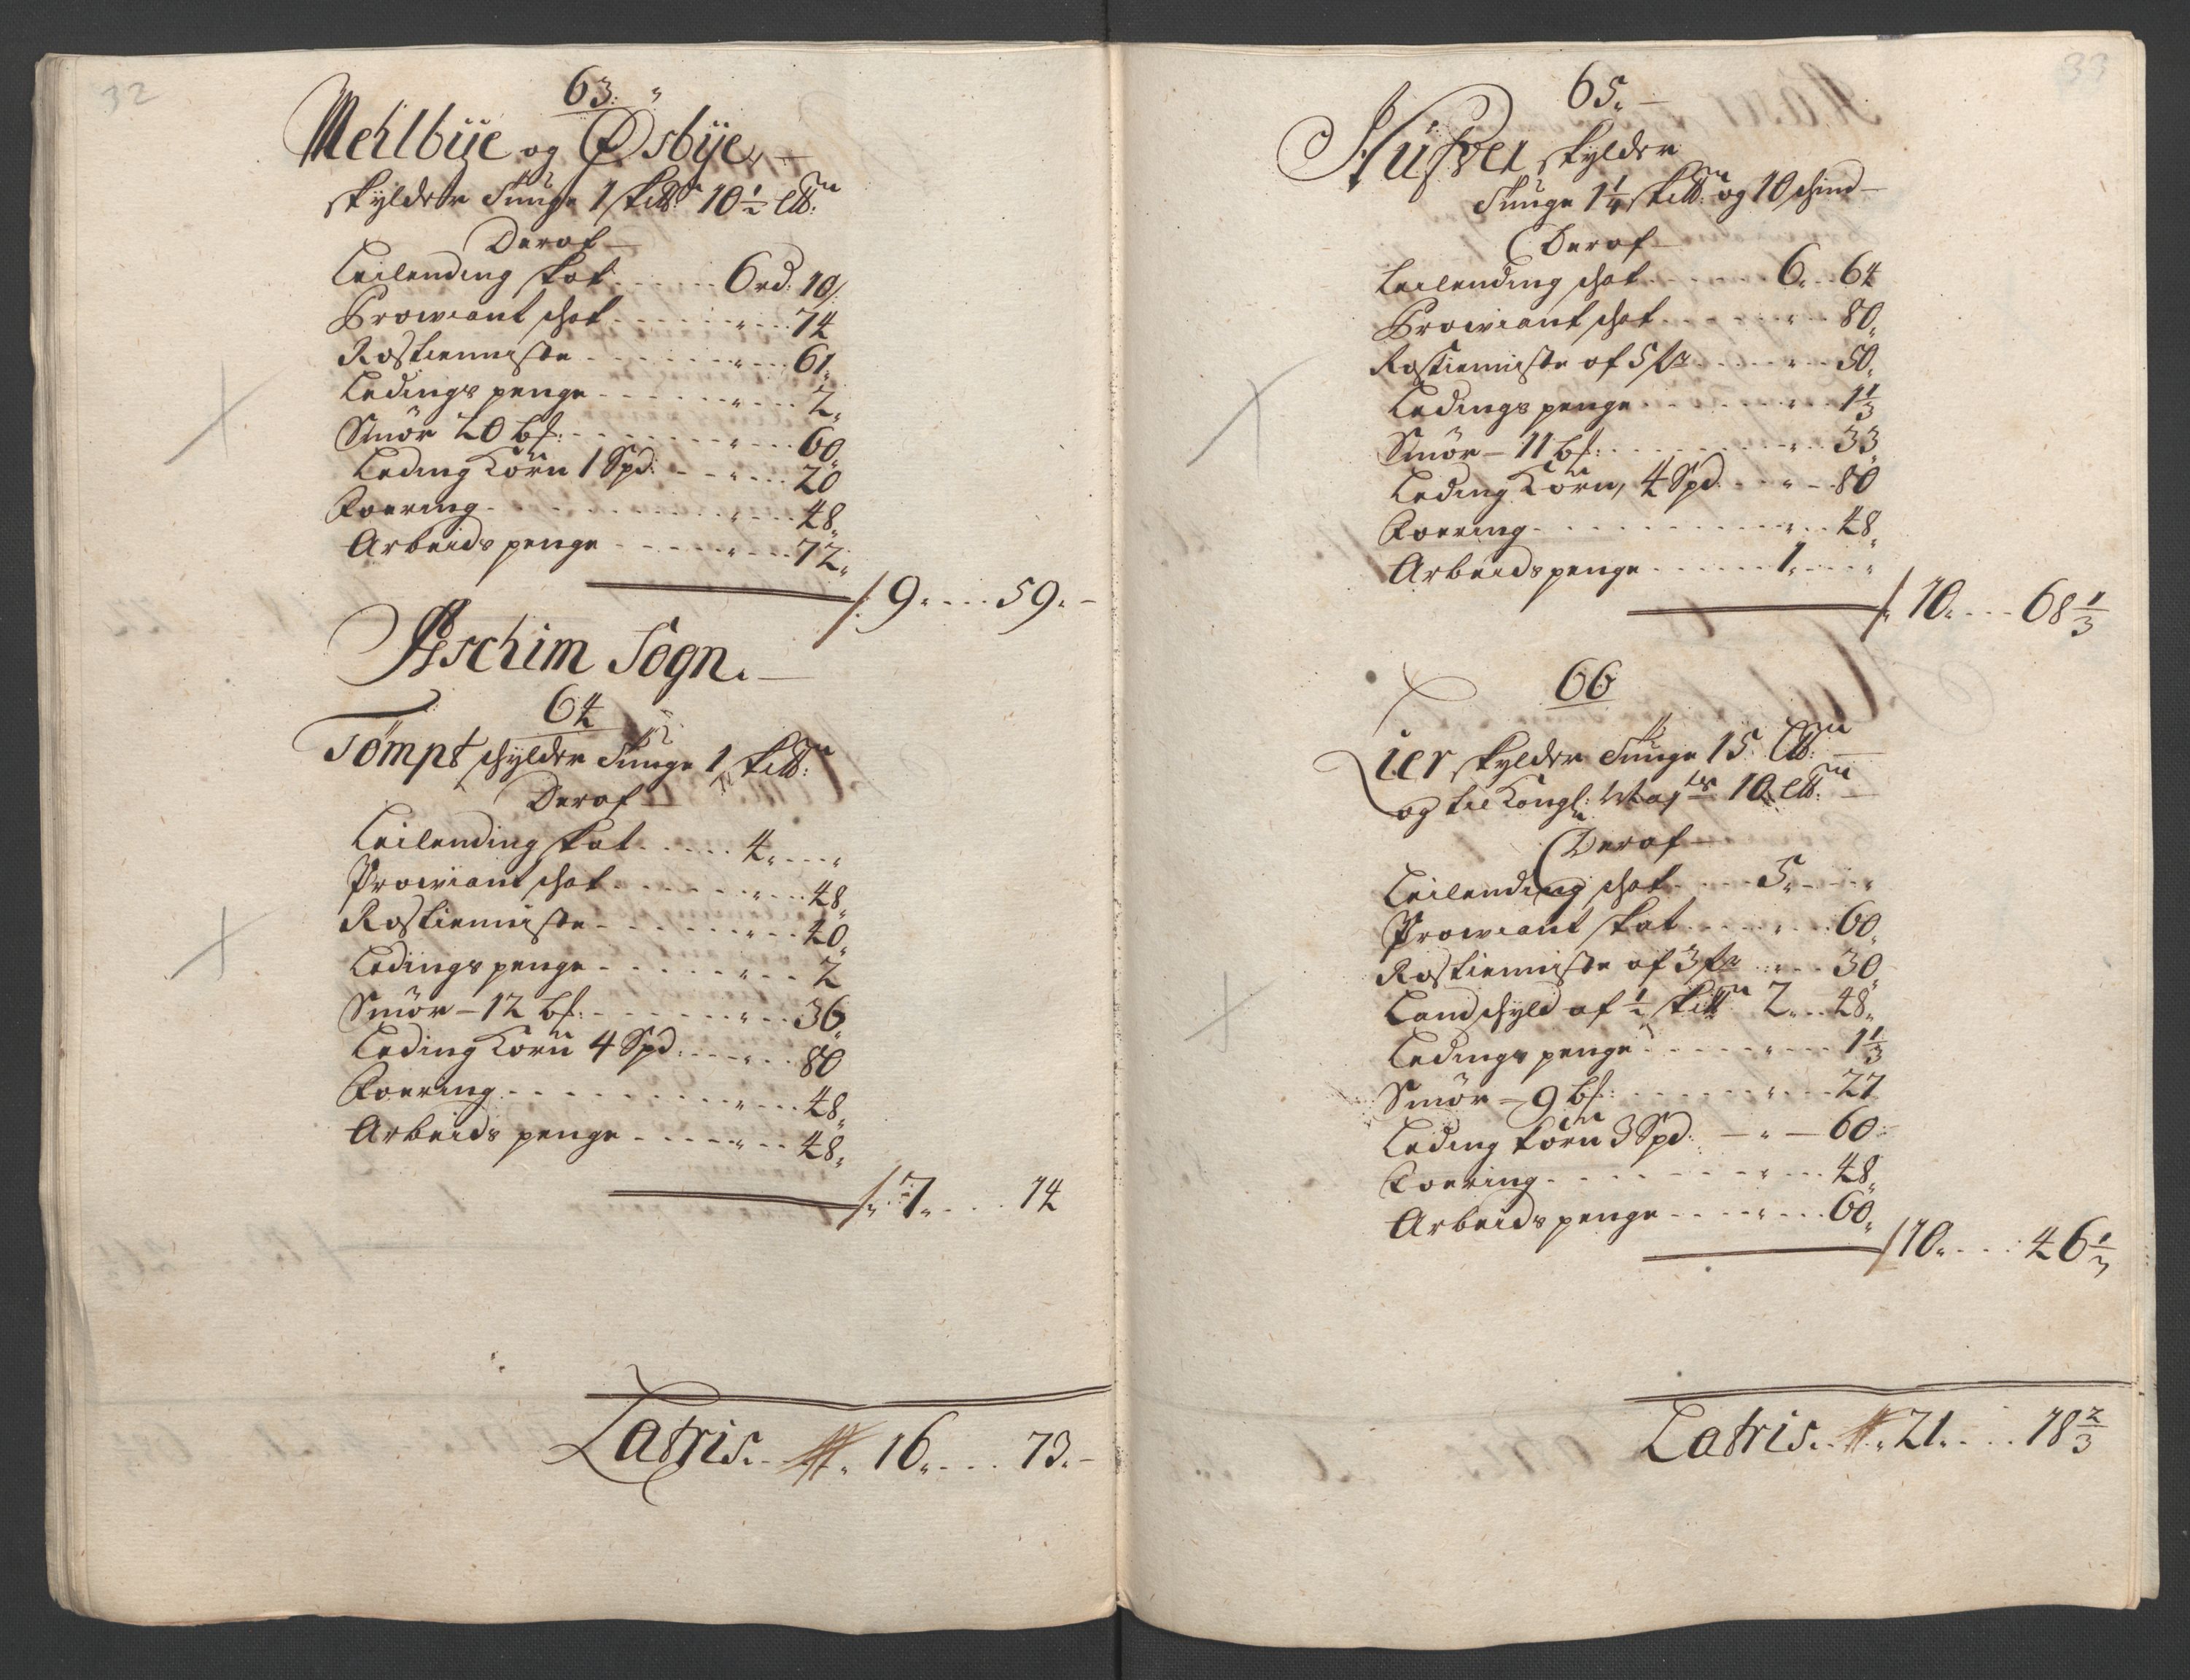 32
63.
Mehlbÿe og Øsbÿe
skÿlder Tunge 1 sk℔. 10½ L℔.
Deraf
Leilending skat 6 rd. 10
Prowiant schat 74
Rostienniste 61
Ledings penge 2
Smör 20 bs: 60
Leding Korn 1 Spd: 20
Foering 48
Arbeids penge 72
9 59
Aschim Sogn.
64
Tompt schylder Tunge 1 sk℔:
Deraf
Leilending skat 4
Prowiant schat 48
Rostienniste 40
Ledings penge 2
Smör 12 bs: 36
Leding Korn 4 Spd: 80
Foering 48
Arbeids penge 48
7 14
Latris. 16 73
33
65.
skylder
Tunge 1¼ sk℔: og 10 schind
Deraf
Leilending schat 6 64
Prowiant schat 80
Rostienniste of 5 50
Ledings penge 1⅓
Smör 11 bs: 33
Leding Korn, 4 Spd 80
Foering 48
Arbeids penge 1
10 68⅓
66
Lier skylder Tunge 15 L℔:
og til Kongl: Mayts 10 L℔:
Deraf
Leilending schat 5
Prowiant skat 60
Rostienniste af 3 30
Landschyld af ½ sk℔ 2 48
Ledings penge 1⅓
Smör 9 bs: 27
Leding korn 3 Spd: 60
Foering 48
Arbeids penge 60
10 46⅓
Latris. 21 18⅔